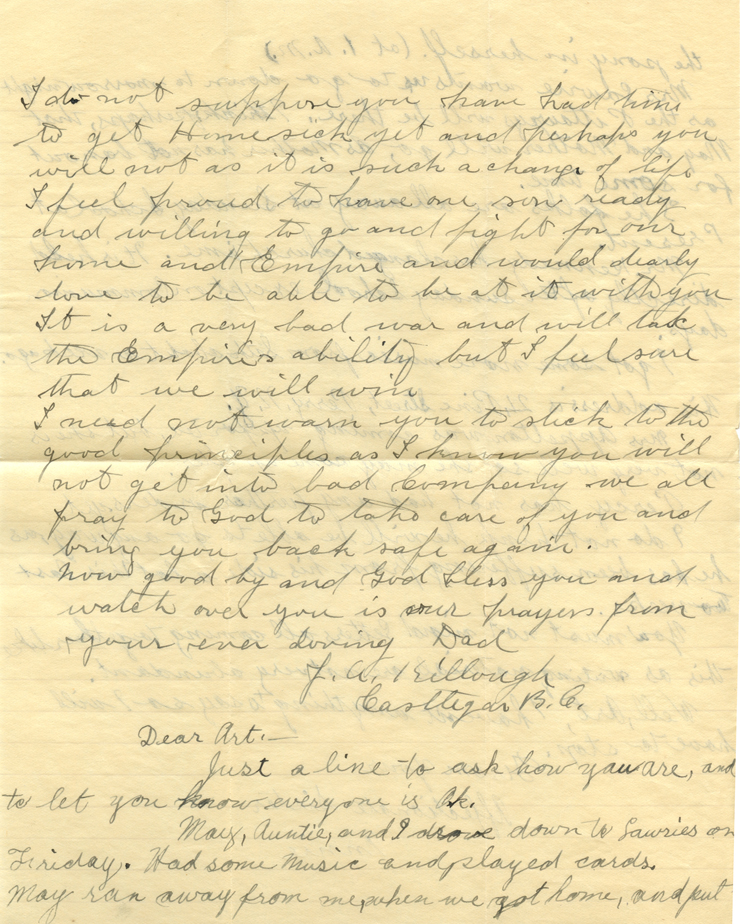 I do not suppose you have had time
to get Homesick yet and perhaps you
will not as it is such a change of life
I feel proud to have one son ready
and willing to go and fight for our
home and Empire and would dearly
love to be able to be at it with you
It is a very bad war and will tak
the Empires ability but I feel sure
that we will win
I need not warn you to stick to the
good principles as I know you will
not get into bad Company we all
pray to God to take care of you and
bring you back safe again.
Now good by and God bless you and
watch over you is our prayers from
your ever loving Dad
J. A. Killough
Castlegar B.C.
Dear Art:—
Just a line to ask how you are, and
to let you know everyone is Ok.
May, Auntie, and I drove down to Lawries on
Friday. Had some music and played cards.
May ran away from me, when we got home, and put